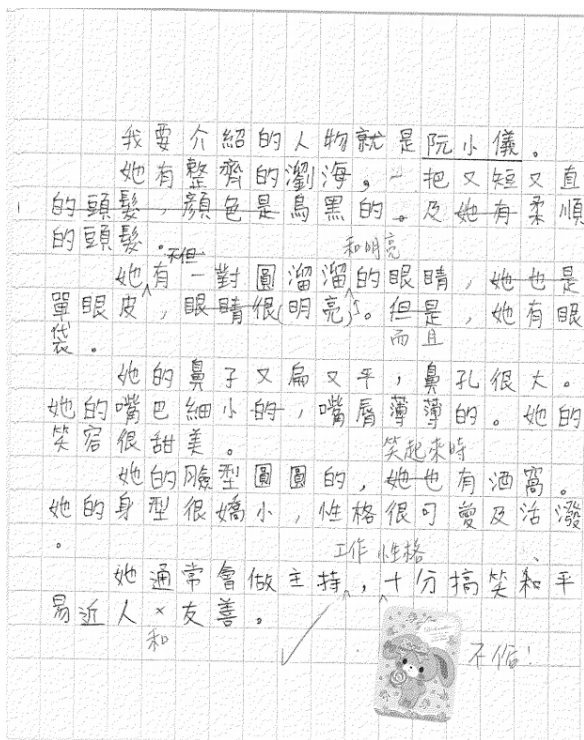 我要介紹的人物就是阮小儀。
她有整齊的瀏海，一把又短又直
的頭髮，顏色是烏黑的。及她有柔順
的頭髮。
不但 和明亮
她有一對圓溜溜的眼睛，她也是
單眼皮，眼睛很（明亮）。但是，她有眼
袋。 而且
她的鼻子又扁又平，鼻孔很大。
她的嘴巴細小的，嘴唇薄薄的。她的
笑容很甜美。
笑起來時
她的臉型圓圓的，她也有酒窩。
她的身型很嬌小，性格很可愛及活潑
。
工作 性格
她通常會做主持，十分搞笑和平
易近人×友善。
和
不俗！